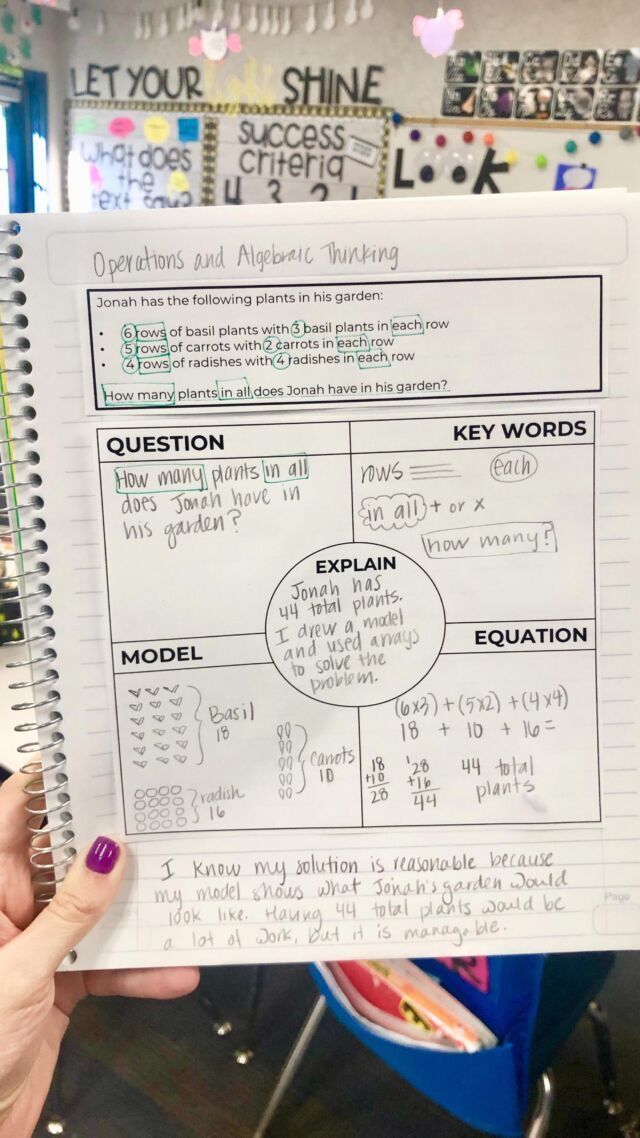 LET YOUR Light SHINE
What does
the
text say?
success
criteria
4 3 2 1
LOOK
Operations and Algebraic Thinking
Jonah has the following plants in his garden:
• 6 rows of basil plants with 3 basil plants in each row
• 5 rows of carrots with 2 carrots in each row
• 4 rows of radishes with 4 radishes in each row
How many plants in all does Jonah have in his garden?
QUESTION
How many plants in all
does Jonah have in
his garden?
KEY WORDS
rows each
in all + or x
how many?
EXPLAIN
Jonah has
44 total plants.
I drew a model
and used arrays
to solve the
problem.
MODEL
Basil
18
carrots
10
radish
16
EQUATION
(6x3) + (5x2) + (4x4)
18 + 10 + 16 =
18
+10
28
1
28
+16
44
44 total
plants
I know my solution is reasonable because
my model shows what Jonah's garden would
look like. Having 44 total plants would be
a lot of work, but it is manageable.
Page